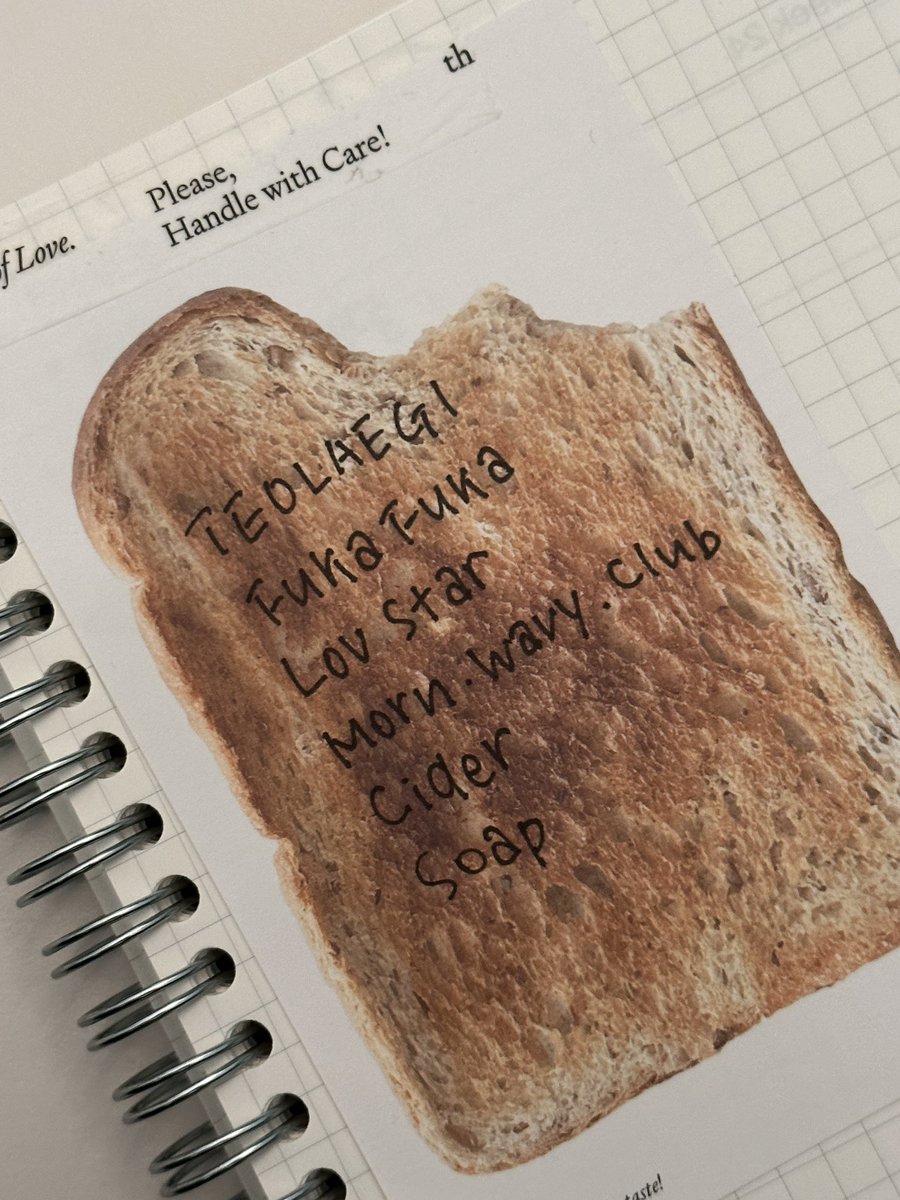 th
Please,
Handle with Care!
of Love.
TEOLAEGI
Fuka Fuka
Lov Star
Morn.wavy.club
Cider
Soap
taste!